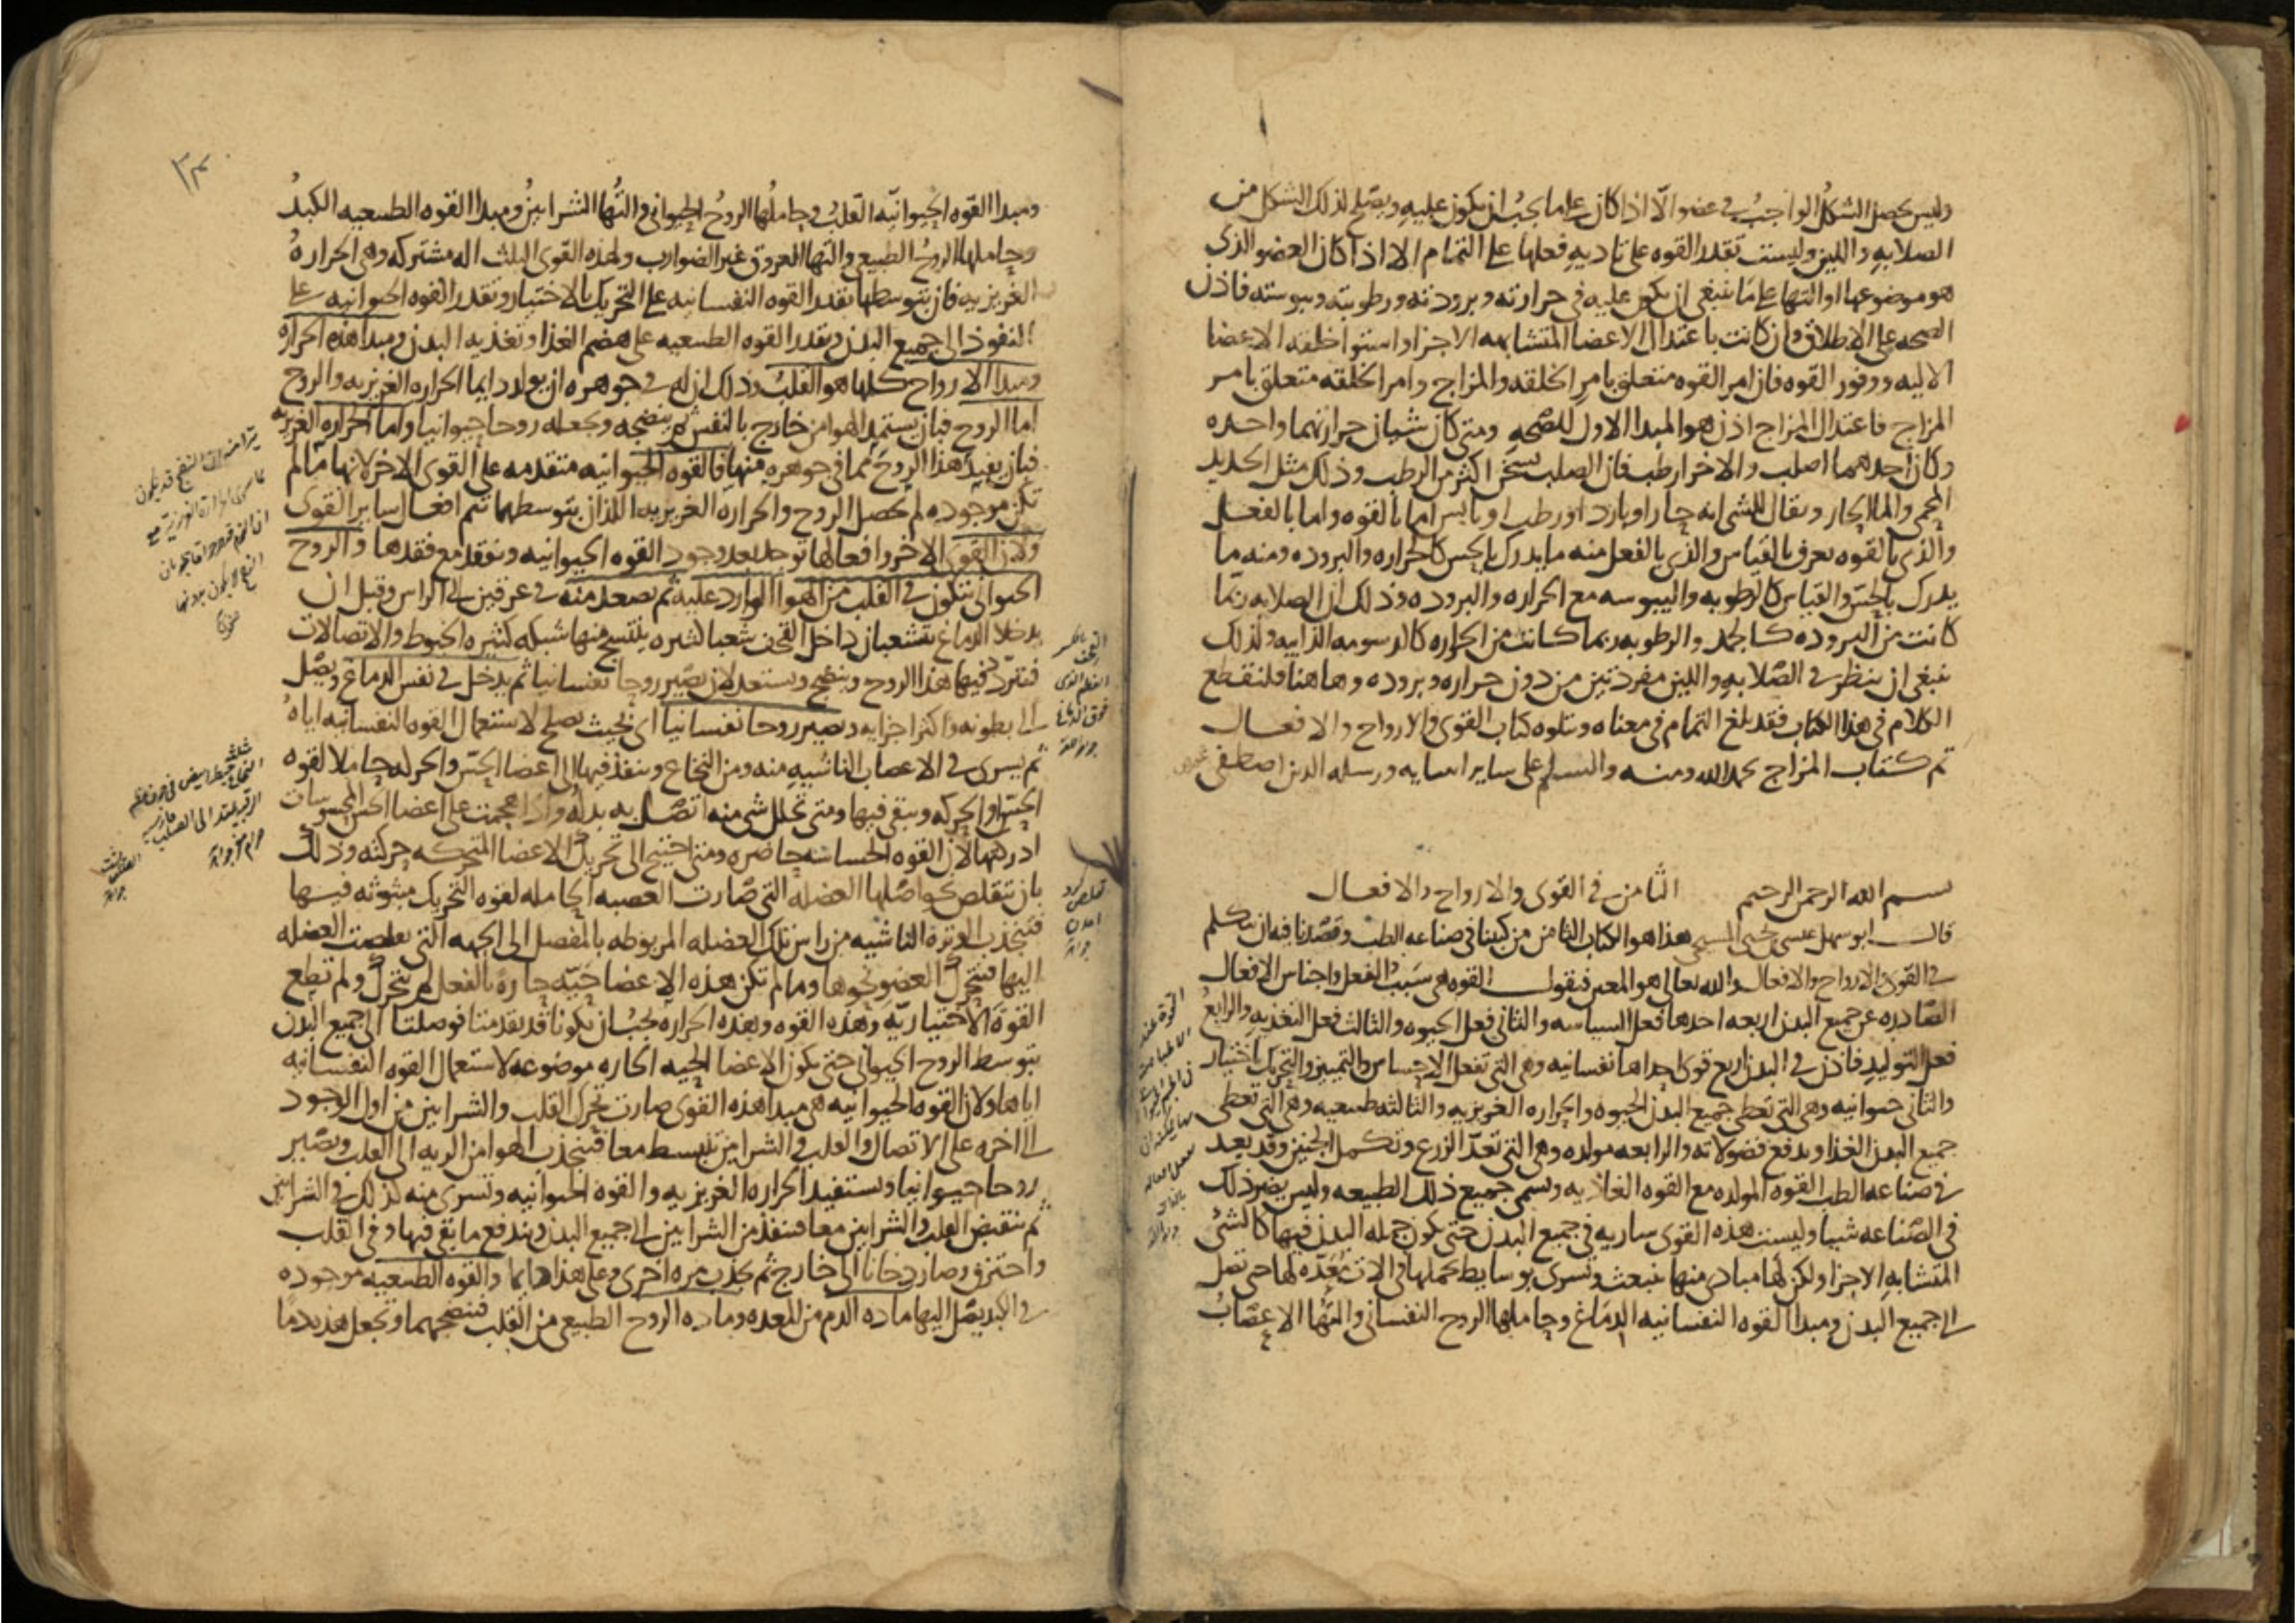 وليس يحصل الشكل الواجب في عضو الا اذا كان على ما يجب ان يكون عليه ويصلح لذلك الشكل من
الصلابه واللين وليست تقدر القوه على تاديه فعلها على التمام الا اذا كان العضو الذى
هو موضوعها او التها على ما ينبغى ان يكون عليه في حرارته وبرودته ورطوبته ويبوسته فاذن
الصحه على الاطلاق وان كانت باعتدال الاعضا المتشابهه الاجزا واستوا خلقه الاعضا
الاليه ووفور القوه فان امر القوه متعلق بامر الخلقه والمزاج وامر الخلقه متعلق بامر
المزاج فاعتدال المزاج اذن هو المبدا الاول للصحه ومتى كان شيان حرارتهما واحده
وكان احدهما اصلب والاخر ارطب فان الصلب يسخن اكثر من الرطب وذلك مثل الحديد
المحمى والما الحار ويقال للشى انه حار او بارد او رطب او يابس اما بالقوه واما بالفعل
والذى بالقوه يعرف بالقياس والذى بالفعل منه ما يدرك بالحس كالحراره والبروده ومنه ما
يدرك بالحس والقياس كالرطوبه واليبوسه مع الحراره والبروده وذلك ان الصلابه ربما
كانت من البروده كالجمد والرطوبه ربما كانت من الحراره كالدسومه الذايبه ولذلك
ينبغى ان ينظر في الصلابه واللين مفردتين من دون حراره وبروده وهاهنا فلنقطع
الكلام في هذا الكتاب فقد بلغ التمام في معناه ويتلوه كتاب القوى والارواح والافعال
تم كتاب المزاج بحمد الله ومنه والسلم على ساير انبيايه ورسله الذين اصطفى
بسم الله الرحمن الرحيم الثامن في القوى والارواح والافعال
قال ابو سهل عيسى بن يحيى المسيحي هذا هو الكتاب الثامن من كتبنا في صناعه الطب وقصدنا فيه ان نتكلم
في القوى والارواح والافعال والله تعالى هو المعين فنقول القوه هى سبب الفعل واجناس الافعال
الصادره عن جميع البدن اربعه احدها فعل السياسه والثانى فعل الحيوه والثالث فعل التغذيه والرابع
فعل التوليد فاذن في البدن اربع قوى احداها نفسانيه وهى التى تفعل الاحساس والتمييز والتحريك باختيار
والثانى حيوانيه وهى التى تعطى جميع البدن الحيوه والحراره الغريزيه والثالثه طبيعيه وهى التى تعطى
جميع البدن الغذا وتدفع فضولاته والرابعه مولده وهى التى تعد الزرع وتكمل الجنين وقد يعد
في صناعه الطب القوه المولده مع القوه الغاذيه ويسمى جميع ذلك الطبيعه وليس يضر ذلك
في الصناعه شيا وليست هذه القوى ساريه في جميع البدن حتى يكون جمله البدن فيها كالشى
المتشابه الاجزا ولكن لها مبادى منها تنبعث وتسرى بوسايط تحملها في الات معده لها حتى تصل
الى جميع البدن ومبدا القوه النفسانيه الدماغ وحاملها الروح النفسانى والتها الاعصاب
القوه عند
الاطبا
ومبدا القوه الحيوانيه القلب وحاملها الروح الحيوانى والتها الشرايين ومبدا القوه الطبيعيه الكبد
وحاملها الروح الطبيعى والتها العروق غير الضوارب ولهذه القوى الثلث اله مشتركه وهى الحراره
الغريزيه فان بتوسطها تقدر القوه النفسانيه على التحريك بالاختيار وتقدر القوه الحيوانيه على
النفوذ الى جميع البدن وتقدر القوه الطبيعيه على هضم الغذا وتغذيه البدن ومبدا هذه الحراره
ومبدا الارواح كلها هو القلب وذلك ان له في جوهره ان يولد دايما الحراره الغريزيه والروح
اما الروح فبان يستمد الهوا من خارج بالنفس ثم ينضجه ويجعله روحا حيوانيا واما الحراره الغريزيه
فبان يفيد هذا الروح مما في جوهره منها فالقوه الحيوانيه متقدمه على القوى الاخر لانها ما لم
تكن موجوده لم يحصل الروح والحراره الغريزيه اللذان بتوسطهما تتم افعال ساير القوى
ولان القوى الاخر وافعالها توجد بعد وجود القوه الحيوانيه وتفقد مع فقدها والروح
الحيوانى يتكون في القلب من الهوا الوارد عليه ثم يصعد منه في عرقين الى الراس وقبل ان
يدخلا الدماغ يتشعبان داخل القحف شعبا كثيره ينتسج منها شبكه كثيره الخيوط والاتصالات
فيتردد فيها هذا الروح وينضج ويستعد لان يصير روحا نفسانيا ثم يدخل في نفس الدماغ ويصل
الى بطونه واكثر اجزايه ويصير روحا نفسانيا اى بحيث يصلح لاستعمال القوه النفسانيه اياه
ثم يسرى في الاعصاب الناشيه منه ومن النخاع وينفذ فيها الى اعضا الحس والحركه حاملا لقوه
الحس او الحركه ويبقى فيها ومتى تحلل شى منه اتصل به بدله واذا هجمت على اعضا الحس المحسوسات
ادركتها لان القوه الحساسه حاضره ومتى احتيج الى تحريك الاعضا المتحركه حركته وذلك
بان تتقلص نحو اصلها العضله التى صارت العصبه الحامله لقوه التحريك مبثوثه فيها
فتنجذب الوتره الناشيه من راس تلك العضله المربوطه بالمفصل الى الجهه التى تقلصت العضله
اليها فيتحرك العضو نحوها وما لم تكن هذه الاعضا حيه حاره بالفعل لم تتحرك ولم تطع
القوه الاختياريه وهذه القوه وهذه الحراره يجب ان يكونا قد تقدمتا فوصلتا الى جميع البدن
بتوسط الروح الحيوانى حتى يكون الاعضا الحيه الحاره موضوعه لاستعمال القوه النفسانيه
اياها ولان القوه الحيوانيه هى مبدا هذه القوى صارت تحرك القلب والشرايين من اول الوجود
الى اخره على الاتصال والقلب والشرايين تنبسط معا فينجذب الهوا من الريه الى القلب ويصير
روحا حيوانيا ويستفيد الحراره الغريزيه والقوه الحيوانيه وتسرى منه كذلك في الشرايين
ثم ينقبض القلب والشرايين معا فينفذ من الشرايين الى جميع البدن ويندفع ما بقى فيها وفي القلب
واحترق وصار دخانا الى خارج ثم يجذب مره اخرى وعلى هذا دايما والقوه الطبيعيه موجوده
في الكبد يصل اليها ماده الدم من المعده وماده الروح الطبيعى من القلب فتنضجهما وتجعل هذه دما